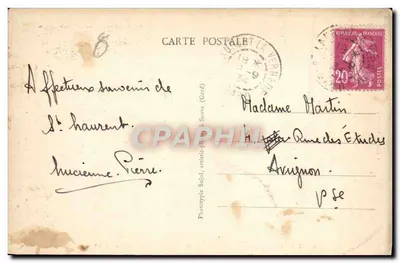 8
CARTE POSTALE
RÉPUBLIQUE FRANÇAISE
20
POSTES
Affectueux souvenir de
St Laurent.
Lucienne, Pierre.
Madame Martin
4, Rue des Études
Avignon
Vse
CPAPHIL
Phototypie Soled,
(Gard)